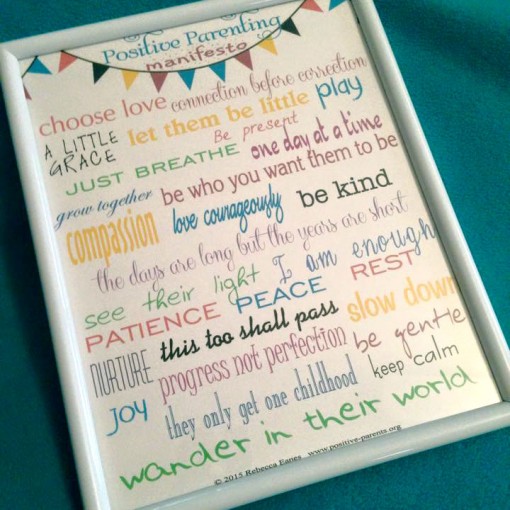 Positive Parenting
manifesto
choose love connection before correction
A LITTLE GRACE let them be little play
Be present
JUST BREATHE one day at a time
grow together be who you want them to be
compassion love courageously be kind
the days are long but the years are short
see their light I am enough
PATIENCE PEACE REST
NURTURE this too shall pass slow down
progress not perfection be gentle
JOY they only get one childhood keep calm
wander in their world
© 2015 Rebecca Eanes www.positive-parents.org